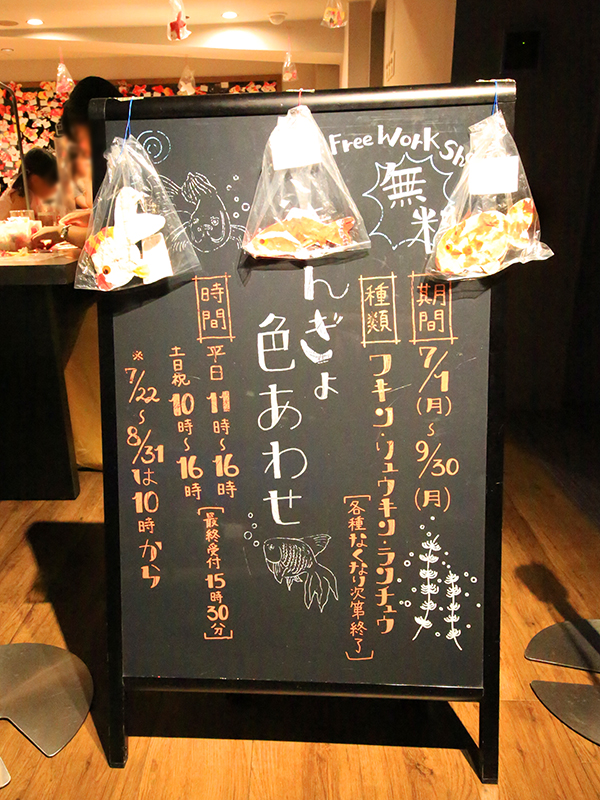 Free Work Sh
無料
期間
7/1(月)～9/30(月)
種類
フキン・リュウキン・ランチュウ
[各種なくなり次第終了]
んぎょ
色あわせ
時間
平日 11時～16時
[最終受付 15時30分]
土日祝 10時～16時
※7/22～8/31は10時から